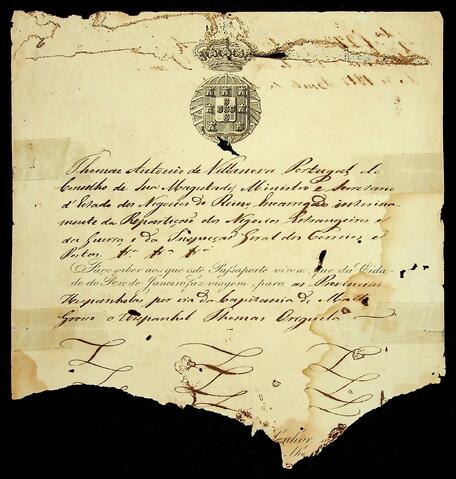 Thomaz Antonio de Villanova Portugal do
Conselho de Sua Magestade, Ministro e Secretario
d'Estado dos Negocios do Reino, Encarregado interina-
mente da Repartição dos Negocios Estrangeiros e
da Guerra, e da Inspecção Geral dos Correios, e
Postas &c &c &c
Faço saber aos que este Passaporte virem, que da Cida-
de do Rio de Janeiro faz viagem para as Provincias
Hespanholas por via da Capitania de Matto
Grosso o Hespanhol Thomas
Senhor